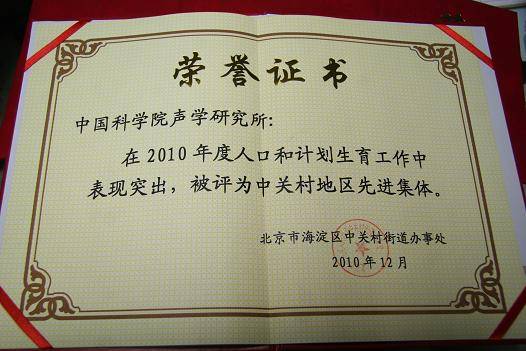 荣誉证书
中国科学院声学研究所：
在2010年度人口和计划生育工作中
表现突出，被评为中关村地区先进集体。
北京市海淀区中关村街道办事处
2010年12月